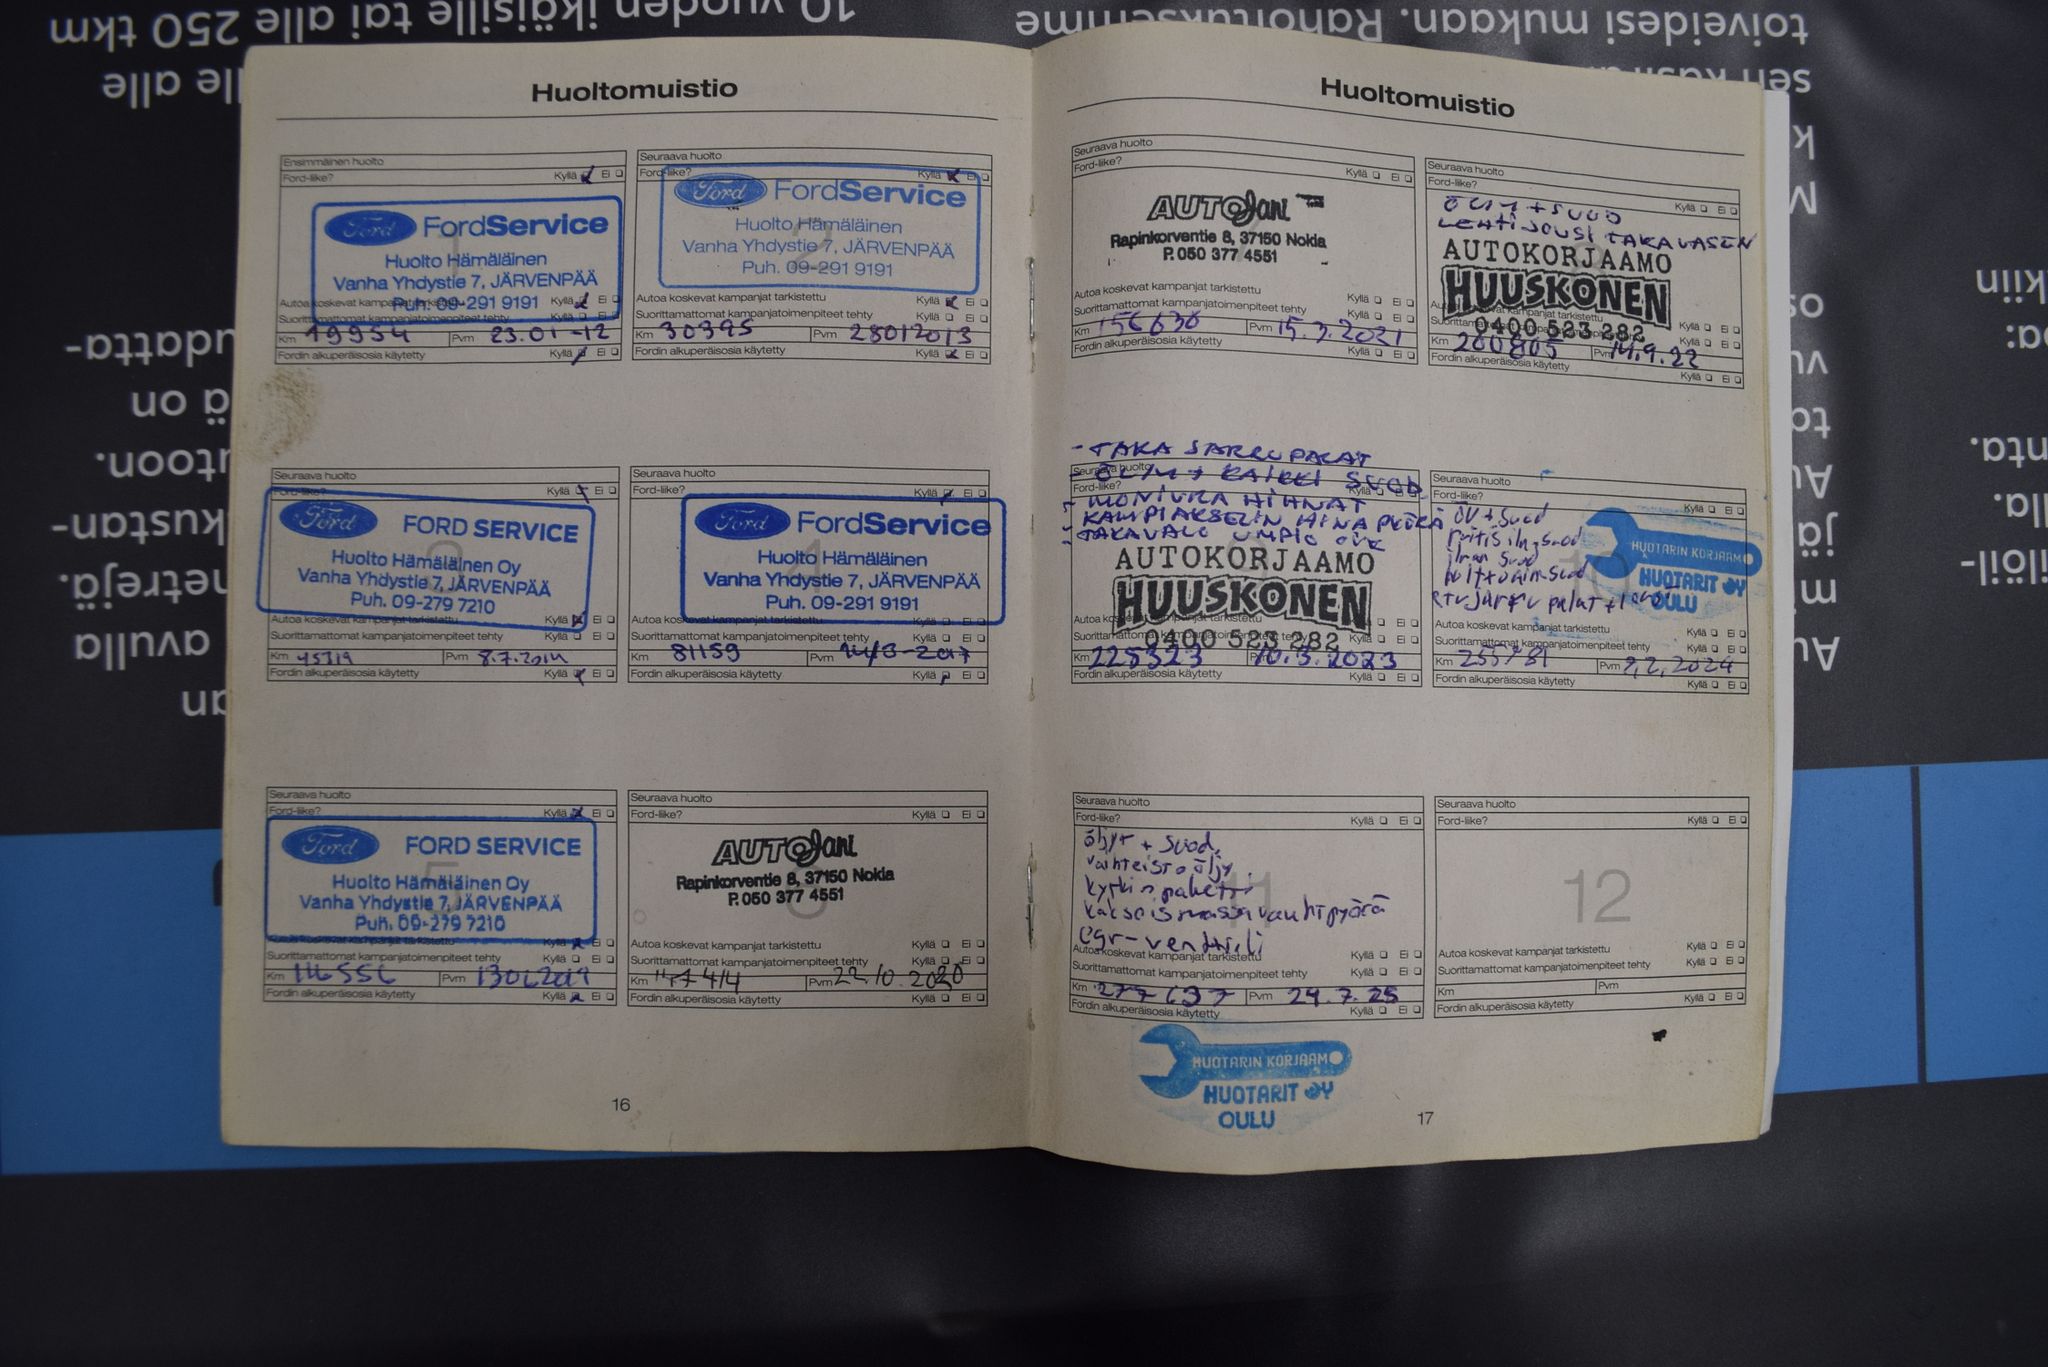 Huoltomuistio
Ensimmäinen huolto
Ford-liike? Kyllä Ei
Ford FordService
Huolto Hämäläinen
Vanha Yhdystie 7, JÄRVENPÄÄ
Puh. 09-291 9191
Autoa koskevat kampanjat tarkistettu Kyllä Ei
Suorittamattomat kampanjatoimenpiteet tehty Kyllä Ei
Km 19954 Pvm 23.01-12
Fordin alkuperäisosia käytetty Kyllä Ei
Seuraava huolto
Ford-liike? Kyllä Ei
Ford FordService
Huolto Hämäläinen
Vanha Yhdystie 7, JÄRVENPÄÄ
Puh. 09-291 9191
2
Autoa koskevat kampanjat tarkistettu Kyllä Ei
Suorittamattomat kampanjatoimenpiteet tehty Kyllä Ei
Km 30395 Pvm 28012013
Fordin alkuperäisosia käytetty Kyllä Ei
Seuraava huolto
Ford-liike? Kyllä Ei
Ford FORD SERVICE
Huolto Hämäläinen Oy
Vanha Yhdystie 7, JÄRVENPÄÄ
Puh. 09-279 7210
Autoa koskevat kampanjat tarkistettu Kyllä Ei
Suorittamattomat kampanjatoimenpiteet tehty Kyllä Ei
Km 45319 Pvm 8.7.2014
Fordin alkuperäisosia käytetty Kyllä Ei
Seuraava huolto
Ford-liike? Kyllä Ei
Ford FordService
Huolto Hämäläinen
Vanha Yhdystie 7, JÄRVENPÄÄ
Puh. 09-291 9191
Autoa koskevat kampanjat tarkistettu Kyllä Ei
Suorittamattomat kampanjatoimenpiteet tehty Kyllä Ei
Km 81159 Pvm
Fordin alkuperäisosia käytetty Kyllä Ei
Seuraava huolto
Ford-liike? Kyllä Ei
Ford FORD SERVICE
Huolto Hämäläinen Oy
Vanha Yhdystie 7, JÄRVENPÄÄ
Puh. 09-279 7210
5
Kyllä Ei
Suorittamattomat kampanjatoimenpiteet tehty Kyllä Ei
Km Pvm
Fordin alkuperäisosia käytetty Kyllä Ei
Seuraava huolto
Ford-liike? Kyllä Ei
AUTOJani
Rapinkorventie 8, 37150 Nokia
P. 050 377 4551
Autoa koskevat kampanjat tarkistettu Kyllä Ei
Suorittamattomat kampanjatoimenpiteet tehty Kyllä Ei
Km Pvm 22.10.2020
Fordin alkuperäisosia käytetty Kyllä Ei
16
Huoltomuistio
Seuraava huolto
Ford-liike? Kyllä Ei
AUTOJani
Rapinkorventie 8, 37150 Nokia
P. 050 377 4551
Autoa koskevat kampanjat tarkistettu
Suorittamattomat kampanjatoimenpiteet tehty Kyllä Ei
Km 156630 Pvm 15.3.2021
Fordin alkuperäisosia käytetty Kyllä Ei
Seuraava huolto
Ford-liike? Kyllä Ei
ÖLJY + SUOD
LEHTIJOUSI TAKAVASEN
AUTOKORJAAMO
HUUSKONEN
0400 523 282
Km 200805 Pvm 14.9.22
Fordin alkuperäisosia käytetty Kyllä Ei
- TAKA JARRUPALAT
Seuraava huolto
- ÖLJY + KAIKKI SUOD
- MONIURA HIHNAT
- KAMPIAKSELIN HINAPYÖRÄ
- TAKAVALO UMPIO
AUTOKORJAAMO
HUUSKONEN
0400 523 282
Suorittamattomat kampanjatoimenpiteet tehty Kyllä Ei
Km 225323 10.3.2023
Fordin alkuperäisosia käytetty Kyllä Ei
Seuraava huolto
Ford-liike? Kyllä Ei
ÖV + Suod
raitisilm.suod
ilman Suod
polttoaim.suod
HUOTARIN KORJAAMO
HUOTARIT OY
OULU
Autoa koskevat kampanjat tarkistettu Kyllä Ei
Suorittamattomat kampanjatoimenpiteet tehty Kyllä Ei
Km 255781 Pvm 2024
Fordin alkuperäisosia käytetty Kyllä Ei
Seuraava huolto
Ford-liike? Kyllä Ei
öljyt + Suod.
vaihteistoöljy
kytkinpaketti
kaksoismassavauhtipyörä
egr-venttiili
11
Autoa koskevat kampanjat tarkistettu Kyllä Ei
Suorittamattomat kampanjatoimenpiteet tehty Kyllä Ei
Km 277637 Pvm 24.7.25
Fordin alkuperäisosia käytetty Kyllä Ei
HUOTARIN KORJAAMO
HUOTARIT OY
OULU
Seuraava huolto
Ford-liike? Kyllä Ei
12
Autoa koskevat kampanjat tarkistettu Kyllä Ei
Suorittamattomat kampanjatoimenpiteet tehty Kyllä Ei
Km Pvm
Fordin alkuperäisosia käytetty Kyllä Ei
17
10 vuoden ikäisille tai alle 250 tkm
toiveidesi mukaan. Rahoituksemme